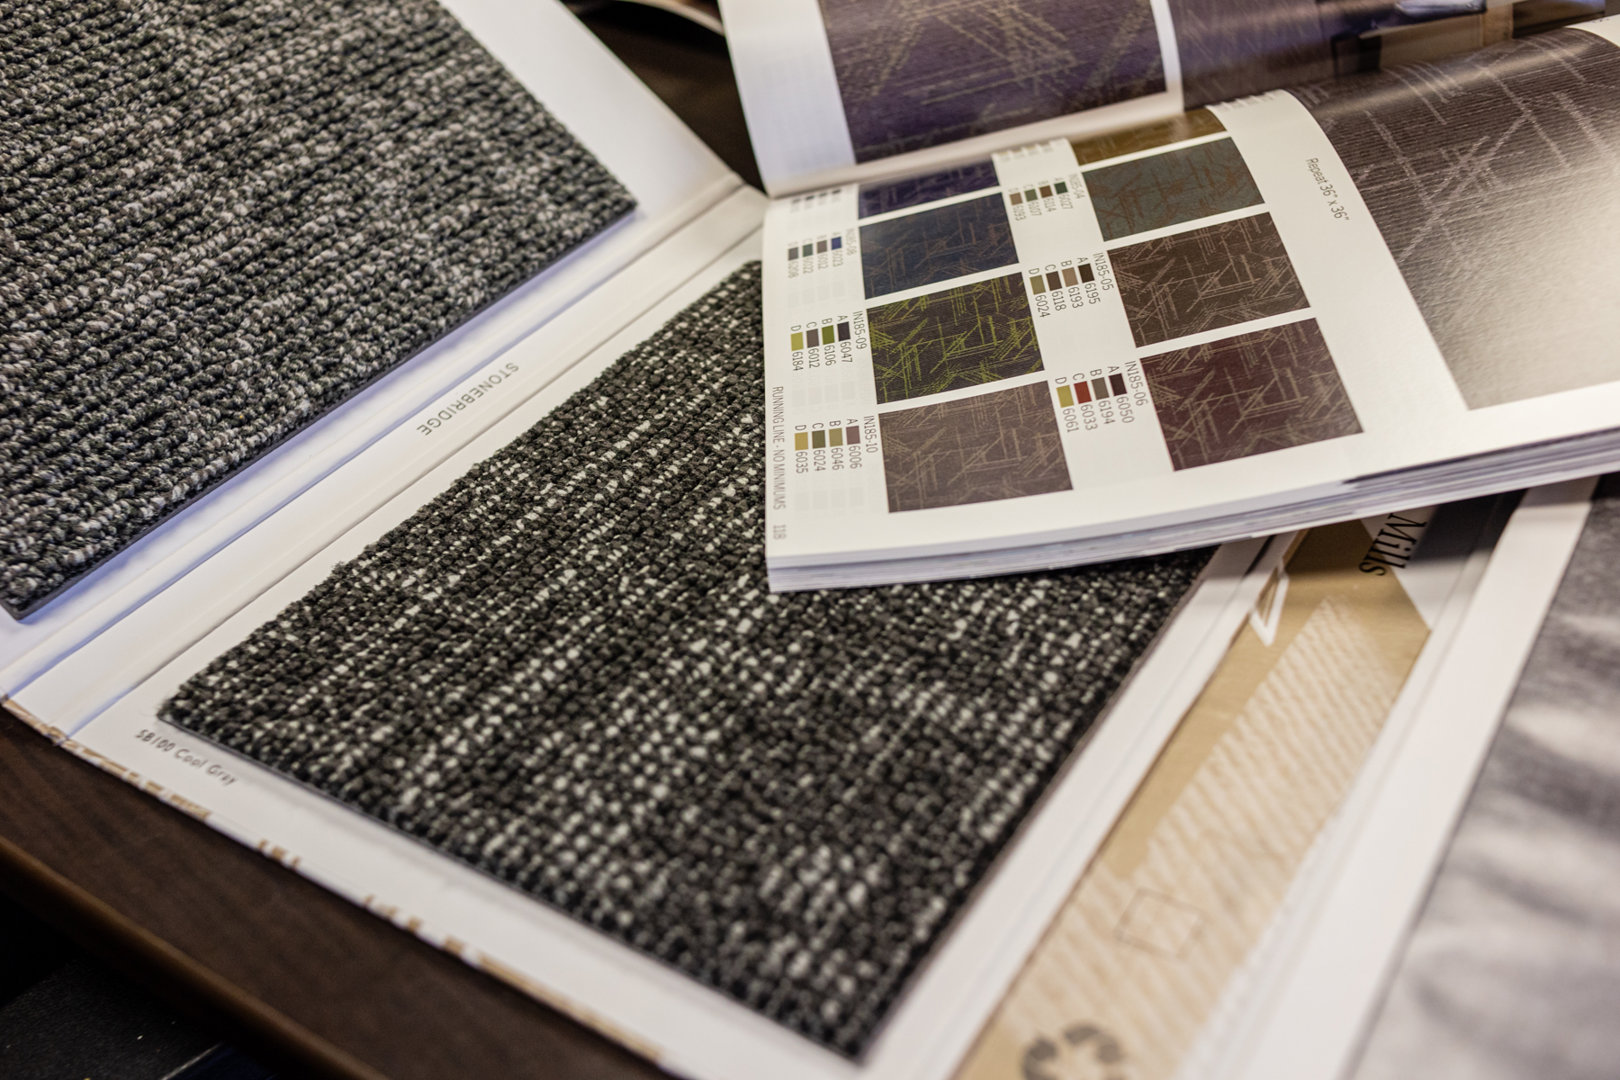 STONEBRIDGE
SB100 Cool Grey
Repeat 36" x 36"
IN185-05
A 6195
B 6193
C 6118
D 6024
IN185-06
A 6050
B 6194
C 6033
D 6061
IN185-09
A 6047
B 6106
C 6012
D 6184
IN185-10
A 6006
B 6046
C 6024
D 6035
RUNNING LINE - NO MINIMUMS 118
Mills